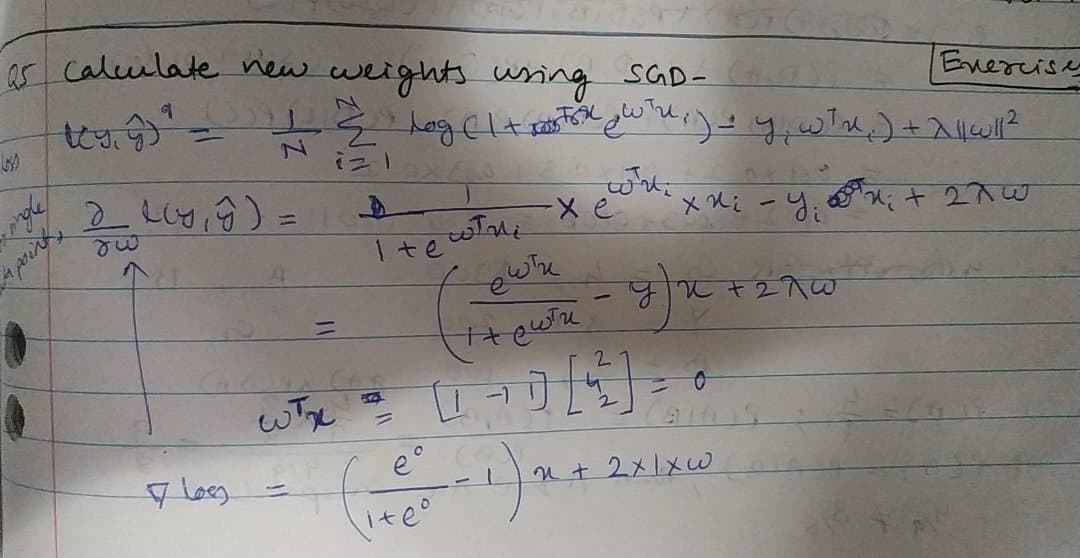 Q5 Calculate new weights using SGD- Exercise
loss
L(y,ŷ) = 1/N Σ_{i=1}^{N} log(1+ e^{wᵀxᵢ}) - yᵢ wᵀxᵢ) + λ||w||²
single point,
∂/∂w L(y,ŷ) = 1/(1+e^{wᵀxᵢ}) × e^{wᵀxᵢ} × xᵢ - yᵢ xᵢ + 2λw
= (e^{wᵀx}/(1+e^{wᵀx}) - y) x + 2λw
wᵀx = [1 -1 1] [2 4 2] = 0
∇ loss = (e⁰/(1+e⁰) - 1) x + 2×1×w